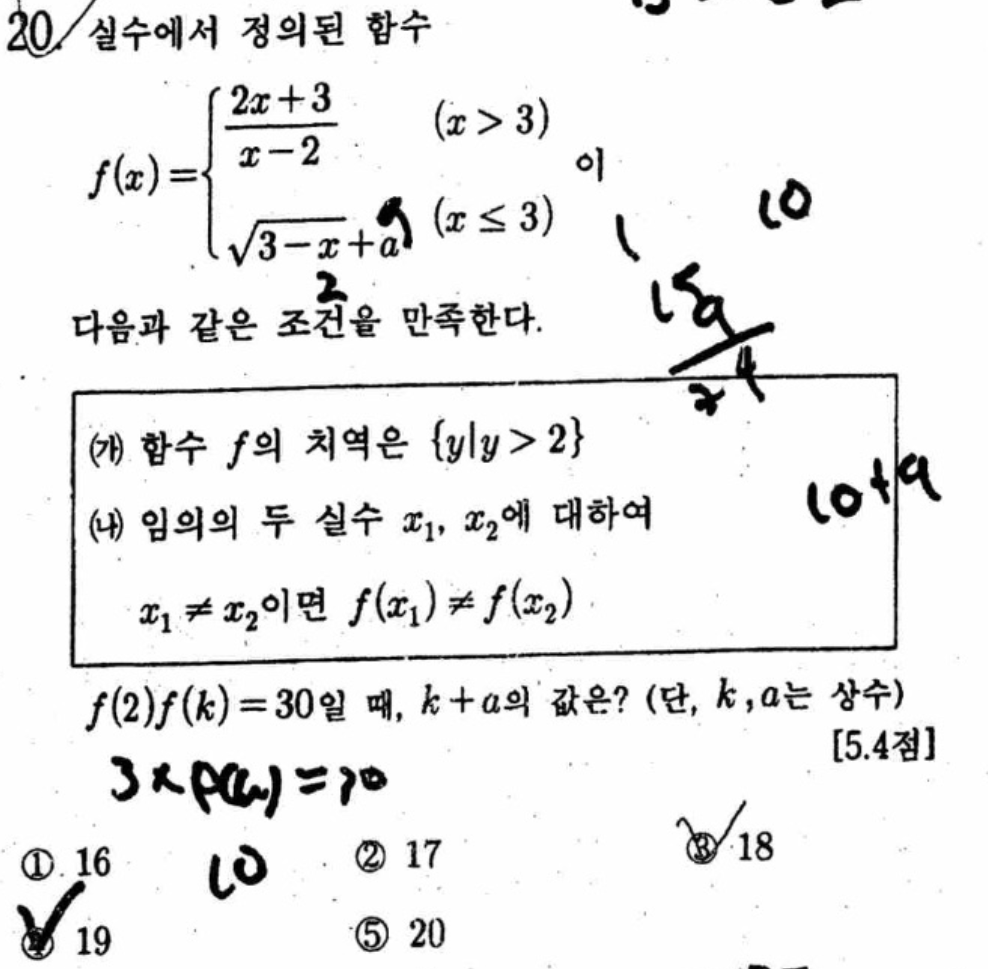 20. 실수에서 정의된 함수
f(x) = { (2x+3)/(x-2) (x > 3)
√(3-x) + a (x ≤ 3) 이
9
2
10
1
15
9
4
다음과 같은 조건을 만족한다.
㈎ 함수 f의 치역은 {y|y > 2}
㈏ 임의의 두 실수 x₁, x₂에 대하여
10+9
x₁ ≠ x₂이면 f(x₁) ≠ f(x₂)
f(2)f(k) = 30일 때, k+a의 값은? (단, k, a는 상수)
[5.4점]
① 16
10
② 17
③ 18
④ 19
⑤ 20